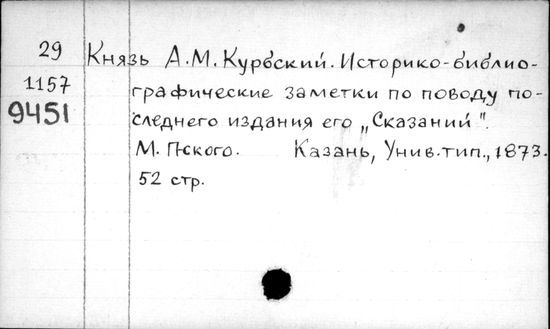 29 Князь А.М. Курбский. Историко-библио-
1157 графические заметки по поводу по-
9451 следнего издания его „Сказаний".
М. П-ского. Казань, Унив. тип., 1873.
52 стр.